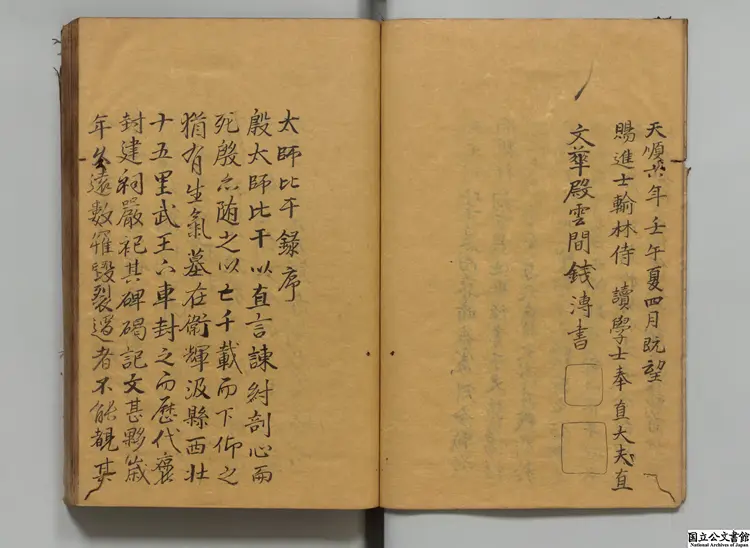 天順六年壬午夏四月既望
賜進士翰林侍讀學士奉直大夫直
文華殿雲間錢溥書
太師比干錄序
殷太師比干以直言諫紂剖心而
死殷亦随之以亡千載而下仰之
猶有生氣墓在衛輝汲縣西北
十五里武王亦車封之而歷代襃
封建祠嚴祀其碑碣記文甚夥歲
年久遠數罹毀裂過者不能覩其
国立公文書館
National Archives of Japan